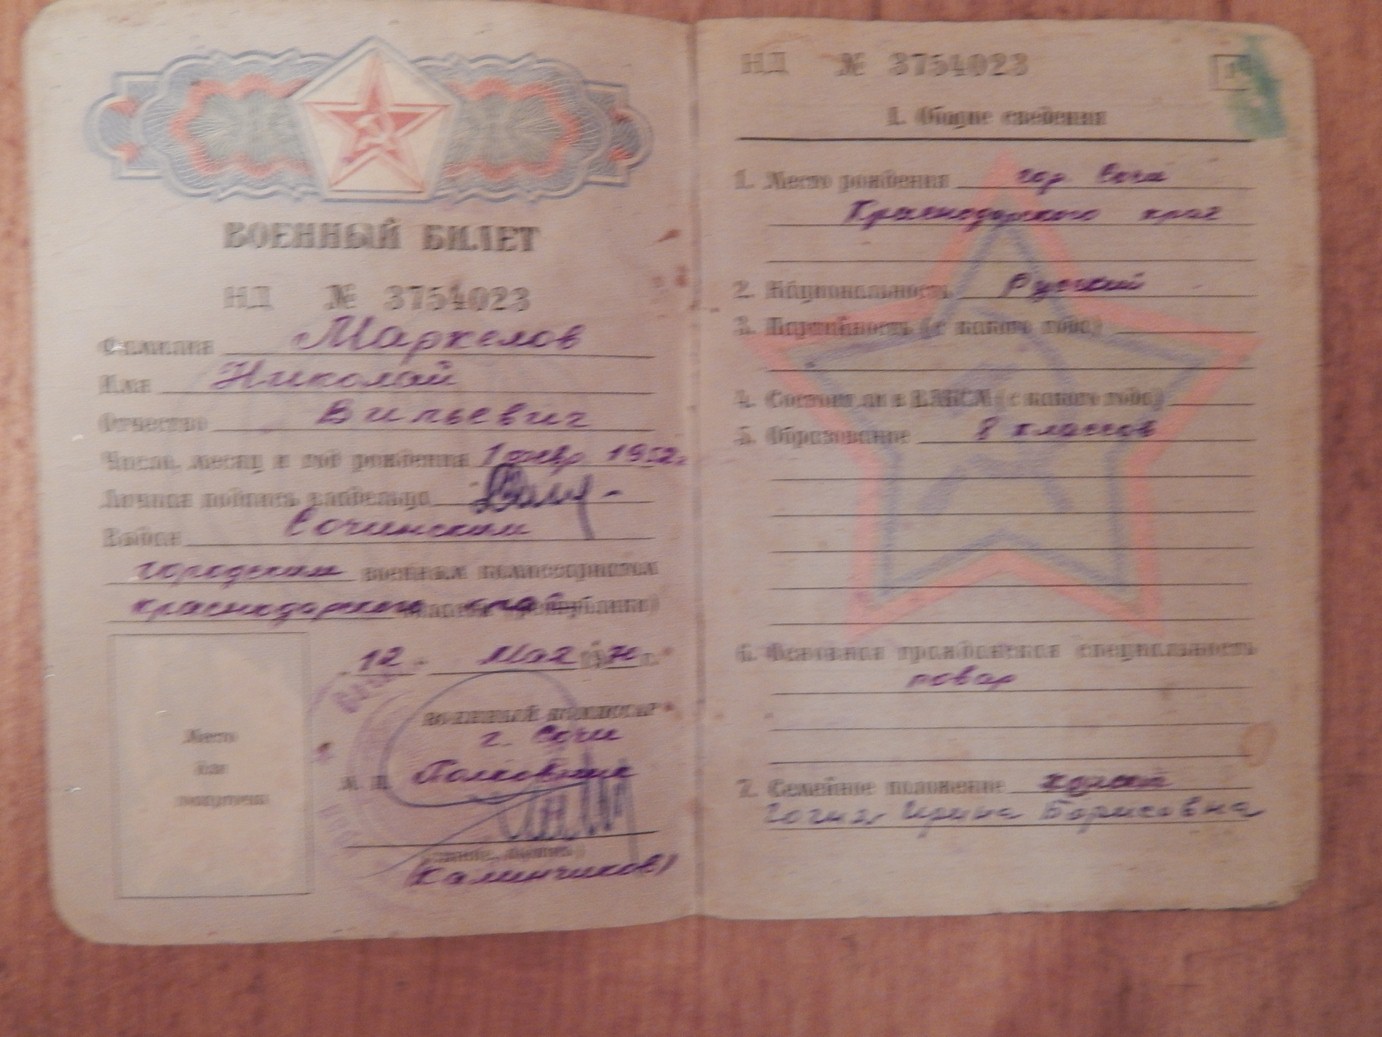 ВОЕННЫЙ БИЛЕТ
НД № 3754023
Фамилия Маркелов
Имя Николай
Отчество Вильевич
Число, месяц и год рождения 1 февр 1952г
Личная подпись владельца
Выдан Сочинским
городским военным комиссариатом
Краснодарского края области (республики)
12 Мая 1970 г.
военный комиссар
г. Сочи
М. П. Полковник
(Калинчиков)
Место
для
НД № 3754023
I. Общие сведения
1. Место рождения гор Сочи
Краснодарского края
2. Национальность Русский
3. Партийность (с какого года)
4. Состоит ли в ВЛКСМ (с какого года)
5. Образование 8 классов
6. Основная гражданская специальность
повар
7. Семейное положение холост
Ирина Борисовна